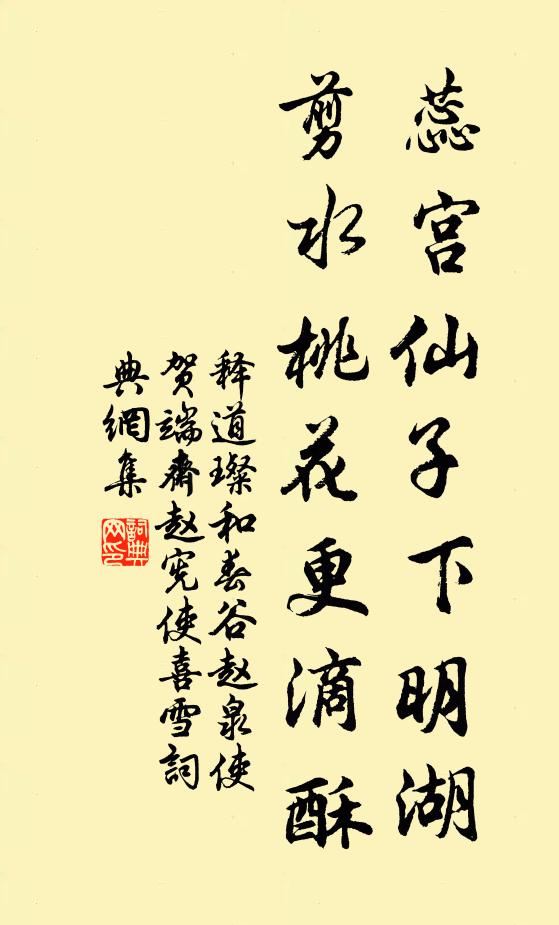 蕊宫仙子下明湖
剪水桃花更滴酥
释道璨和春谷赵泉使
贺端斋赵宪使喜雪詞
典網集
詞典
网印